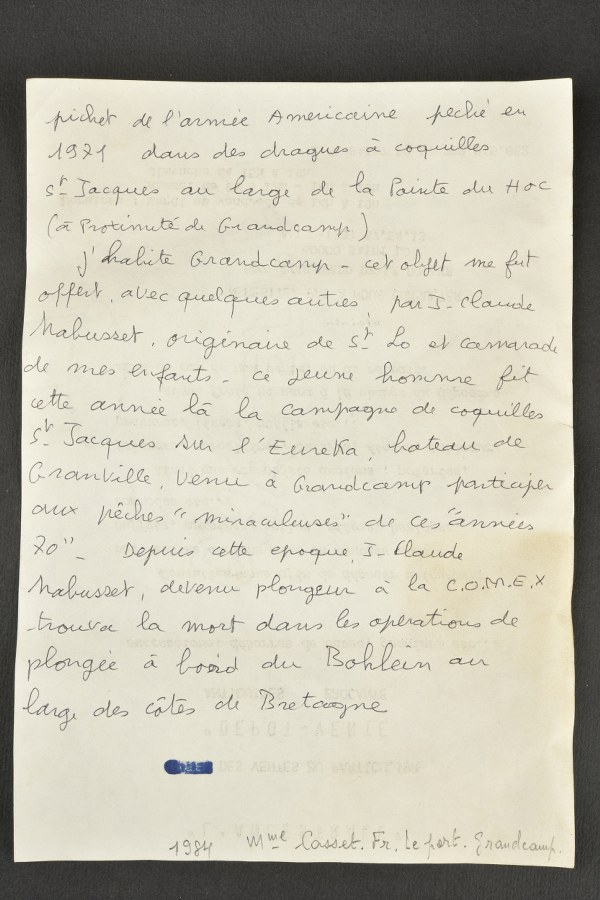 pichet de l'armée Americaine peché en
1971 dans des dragues à coquilles
St Jacques au large de la Pointe du Hoc
(à Proximité de Grandcamp)
j'habite Grandcamp - cet objet me fut
offert, avec quelques autres, par J-Claude
Mabusset, originaire de St Lo et camarade
de mes enfants - ce jeune homme fit
cette année là la campagne de coquilles
St Jacques sur l'Eureka, bateau de
Granville, venu à Grandcamp participer
aux pêches "miraculeuses" de ces "années
70" - Depuis cette epoque, J-Claude
Mabusset, devenu plongeur à la C.O.M.E.X
trouva la mort dans les opérations de
plongée à bord du Bohlein au
large des côtes de Bretagne
1984 Mme Casset. Fr. Le port. Grandcamp.